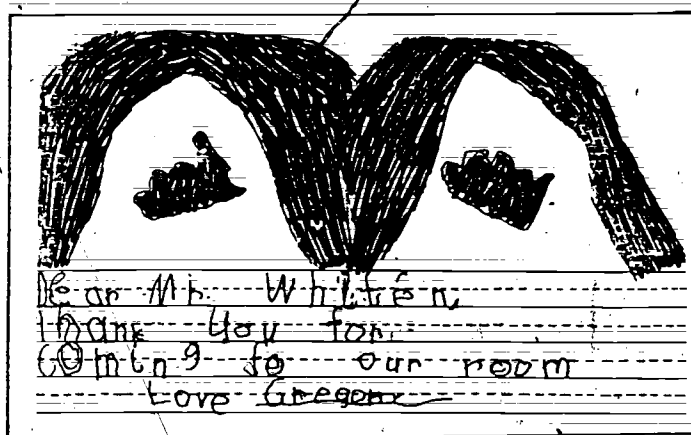 Dear Mr. Whitten
Thank You for
coming to our room
Love Gregory